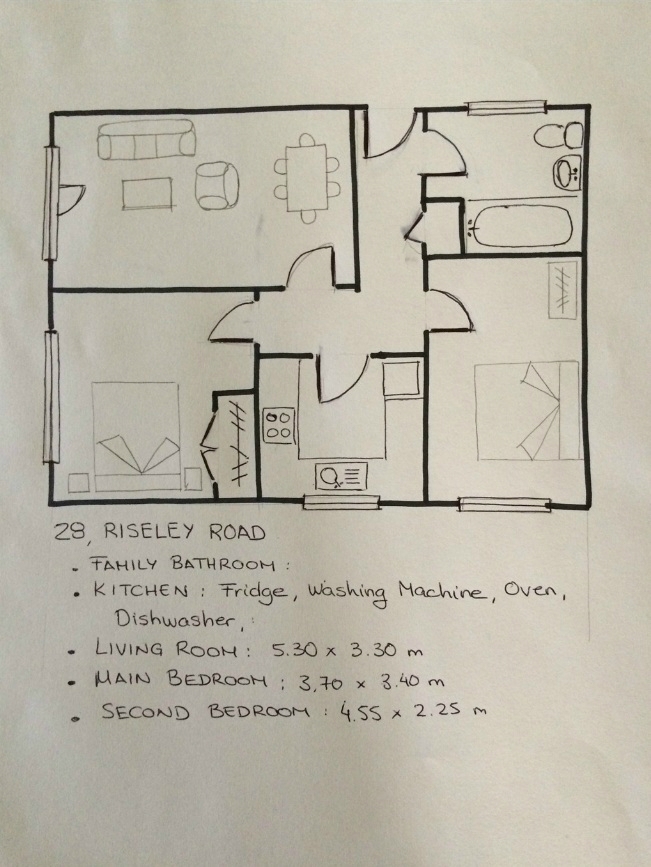 28, RISELEY ROAD
• FAMILY BATHROOM :
• KITCHEN : Fridge, Washing Machine, Oven,
Dishwasher, :
• LIVING ROOM : 5.30 x 3.30 m
• MAIN BEDROOM ; 3,70 x 3.40 m
• SECOND BEDROOM : 4.55 x 2.25 m